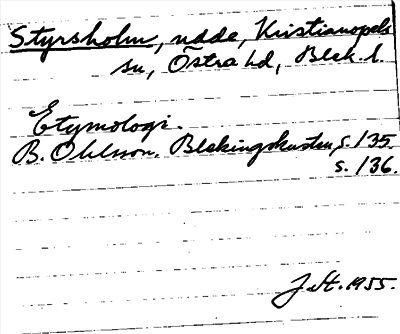 Styrsholm, udde, Kristianopels
sn, Östra hd, Blek. l.
Etymologi.
B. Ohlsson, Blekingekusten, s. 135.
s. 136.
1955.